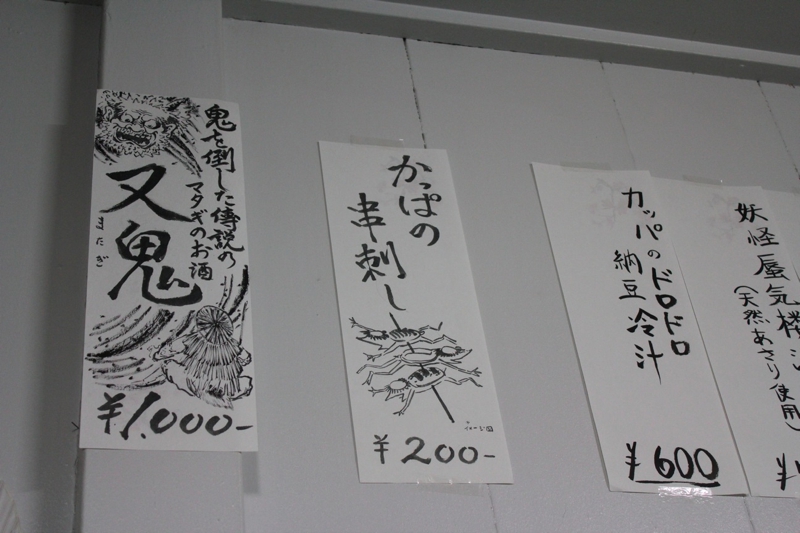 鬼を倒した傳説の
マタギのお酒
又鬼
またぎ
¥1,000-
かっぱの
串刺し
※イメージ図
¥200-
カッパのドロドロ
納豆冷汁
¥600
妖怪蜃気楼
(天然あさり使用)
¥